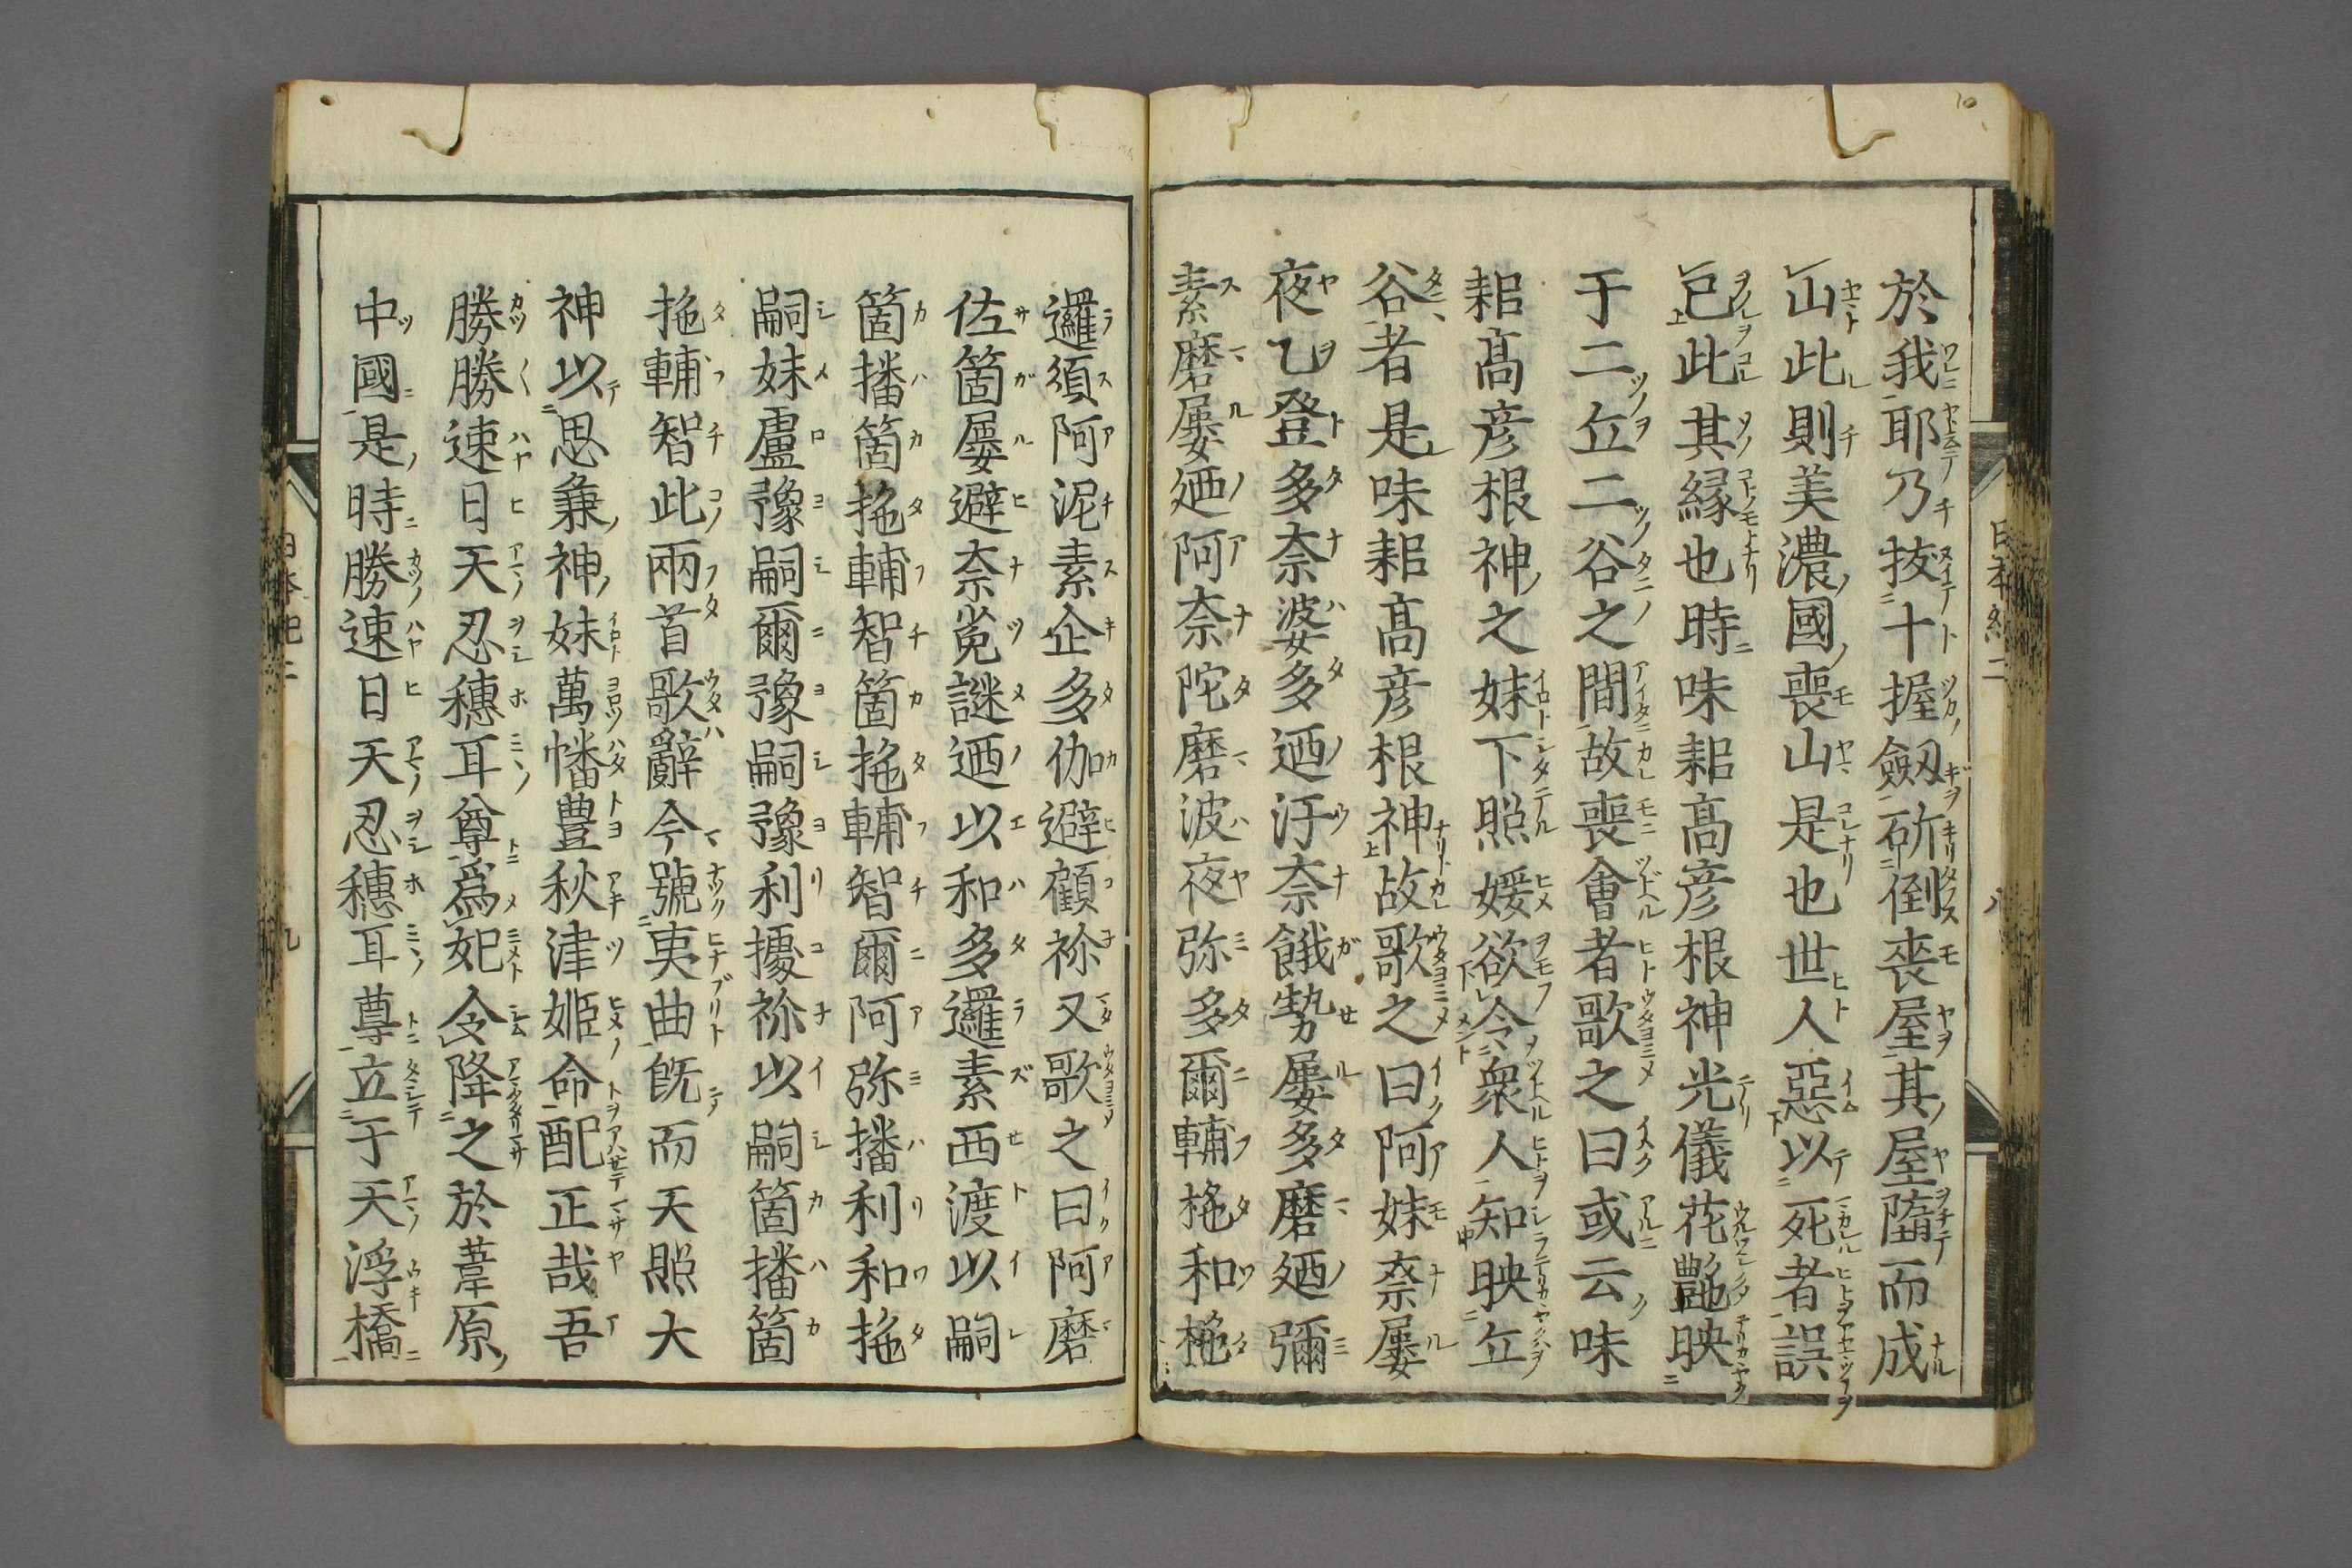 於我耶乃抜十握劔斫倒喪屋其屋隋而成
山此則美濃國喪山是也世人惡以死者誤
已此其縁也時味耜髙彦根神光儀花艶映
于二丘二谷之間故喪會者歌之曰或云味
耜髙彦根神之妹下照媛欲令衆人知映丘
谷者是味耜髙彦根神故歌之曰阿妹奈屢
夜乙登多奈婆多廼汙奈餓勢屢多磨廼彌
素磨屢廼阿奈陀磨波夜弥多爾輔柂和柂
邏須阿泥素企多伽避顧祢又歌之曰阿磨
佐箇屢避奈菟謎廼以和多邏素西渡以嗣
箇播箇拖輔智箇拖輔智爾阿弥播利和拖
嗣妹盧豫嗣爾豫嗣豫利擾祢以嗣箇播箇
拖輔智此兩首歌辭今號夷曲既而天照大
神以思兼神妹萬幡豊秋津姫命配正哉吾
勝勝速日天忍穗耳尊爲妃令降之於葦原
中國是時勝速日天忍穗耳尊立于天浮橋